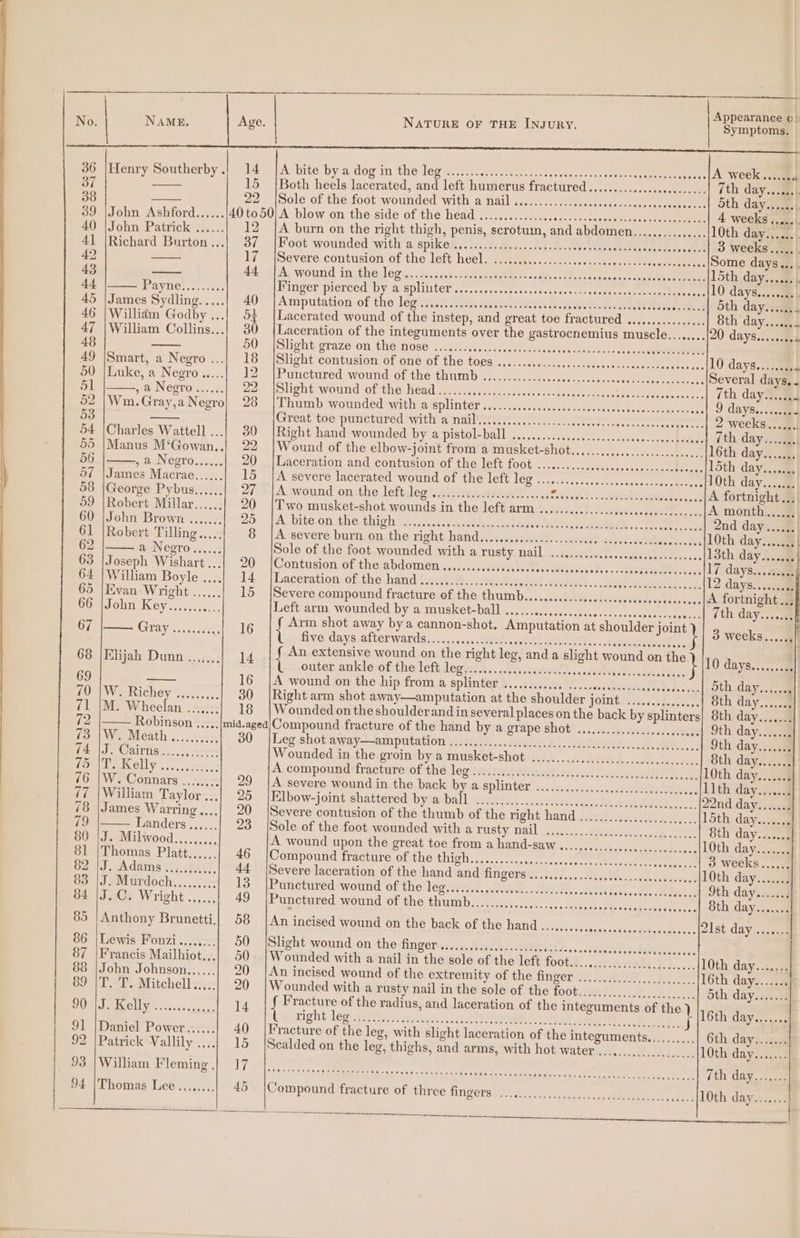 No. NAME. Age. NATURE OF THE INJURY. Appearance o
Symptoms.
36 Henry Southerby. 14 A bite by a dog in the leg ... A week ...
37 —— 15 Both heels lacerated, and left humerus fractured ... 7th day ...
38 —— 22 Sole of the foot wounded with a nail ... 5th day ...
39 John Ashford ... 40 to 50 A blow on the side of the head ... 4 weeks ...
40 John Patrick ... 12 A burn on the right thigh, penis, scrotum, and abdomen ... 10th day ...
41 Richard Burton ... 37 Foot wounded with a spike ... 3 weeks ...
42 —— 17 Severe contusion of the left heel. ... Some days ...
43 —— 44 A wound in the leg ... 15th day ...
44 —— Payne ... Finger pierced by a splinter ... 10 days ...
45 James Sydling ... 40 Amputation of the leg ... 5th day ...
46 William Godby ... 5½ Lacerated wound of the instep, and great toe fractured ... 8th day ...
47 William Collins ... 30 Laceration of the integuments over the gastrocnemius muscle ... 20 days ...
48 —— 50 Slight graze on the nose ...
49 Smart, a Negro ... 18 Slight contusion of one of the toes ... 10 days ...
50 Luke, a Negro ... 12 Punctured wound of the thumb ... Several days ...
51 ——, a Negro ... 22 Slight wound of the head ... 7th day ...
52 Wm. Gray, a Negro 28 Thumb wounded with a splinter ... 9 days ...
53 —— Great toe punctured with a nail ... 2 weeks ...
54 Charles Wattell ... 30 Right hand wounded by a pistol-ball ... 7th day ...
55 Manus M‘Gowan .. 22 Wound of the elbow-joint from a musket-shot ... 16th day ...
56 ——, a Negro ... 20 Laceration and contusion of the left foot ... 15th day ...
57 James Macrae ... 15 A severe lacerated wound of the left leg ... 10th day ...
58 George Pybus ... 27 A wound on the left leg ... A fortnight ...
59 Robert Millar ... 20 Two musket-shot wounds in the left arm ... A month ...
60 John Brown ... 25 A bite on the thigh ... 2nd day ...
61 Robert Tilling ... 8 A severe burn on the right hand ... 10th day ...
62 —— a Negro ... Sole of the foot wounded with a rusty nail ... 13th day ...
63 Joseph Wishart ... 20 Contusion of the abdomen ... 17 days ...
64 William Boyle ... 14 Laceration of the hand ... 12 days ...
65 Evan Wright ... 15 Severe compound fracture of the thumb ... A fortnight ...
66 John Key ... Left arm wounded by a musket-ball ... 7th day ...
67 —— Gray ... 16 { Arm shot away by a cannon-shot. Amputation at shoulder joint }
five days afterwards ... 3 weeks ...
68 Elijah Dunn ... 14 { An extensive wound on the right leg, and a slight wound on the }
outer ankle of the left leg ... 10 days ...
69 —— 16 A wound on the hip from a splinter ... 5th day ...
70 W. Richey ... 30 Right arm shot away—amputation at the shoulder joint ... 8th day ...
71 M. Wheelan ... 18 Wounded on the shoulder and in several places on the back by splinters 8th day ...
72 —— Robinson ... mid.aged Compound fracture of the hand by a grape shot ... 9th day ...
73 W. Meath ... 30 Leg shot away—amputation ... 9th day ...
74 J. Cairns ... Wounded in the groin by a musket-shot ... 8th day ...
75 T. Kelly ... A compound fracture of the leg ... 10th day ...
76 W. Connars ... 29 A severe wound in the back by a splinter ... 11th day ...
77 William Taylor ... 25 Elbow-joint shattered by a ball ... 22nd day ...
78 James Warring ... 20 Severe contusion of the thumb of the right hand ... 15th day ...
79 —— Landers ... 23 Sole of the foot wounded with a rusty nail ... 8th day ...
80 J. Milwood ... A wound upon the great toe from a hand-saw ... 10th day ...
81 Thomas Platt ... 46 Compound fracture of the thigh ... 3 weeks ...
82 J. Adams ... 44 Severe laceration of the hand and fingers ... 10th day ...
83 J. Murdoch ... 13 Punctured wound of the leg ... 9th day ...
84 J. C. Wright ... 49 Punctured wound of the thumb ... 8th day ...
85 Anthony Brunetti. 58 An incised wound on the back of the hand ... 21st day ...
86 Lewis Fonzi ... 50 Slight wound on the finger ...
87 Francis Mailhiot ... 50 Wounded with a nail in the sole of the left foot ... 10th day ...
88 John Johnson ... 20 An incised wound of the extremity of the finger ... 16th day ...
89 T. T. Mitchell ... 20 Wounded with a rusty nail in the sole of the foot ... 5th day ...
90 J. Kelly ... 14 { Fracture of the radius, and laceration of the integuments of the }
right leg ... 16th day ...
91 Daniel Power ... 40 Fracture of the leg, with slight laceration of the integuments ... 6th day ...
92 Patrick Vallily ... 15 Scalded on the leg, thighs, and arms, with hot water ... 10th day ...
93 William Fleming . 17 ... 7th day ...
94 Thomas Lee ... 45 Compound fracture of three fingers ... 10th day ...